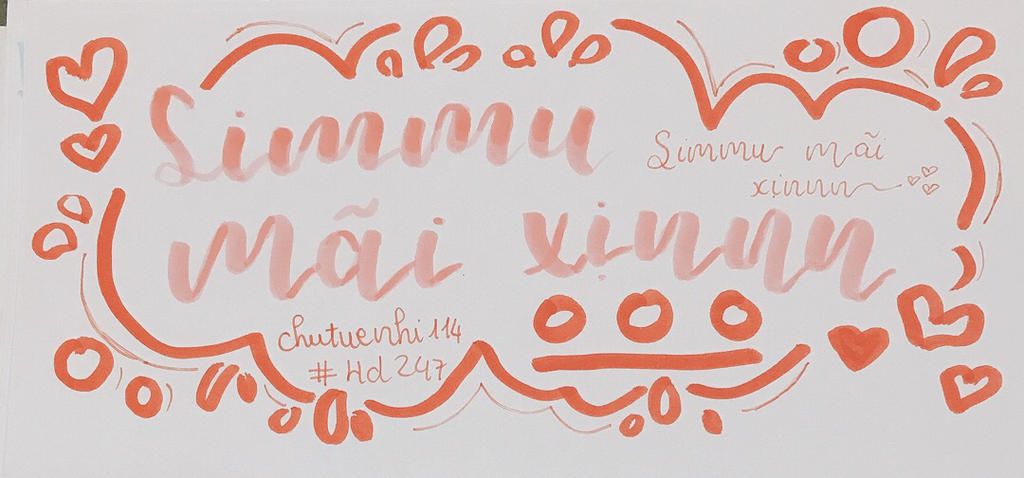 Simmu
mãi xịnnn
Simmu mãi
xịnnn
chutuenhi114
#Hd247